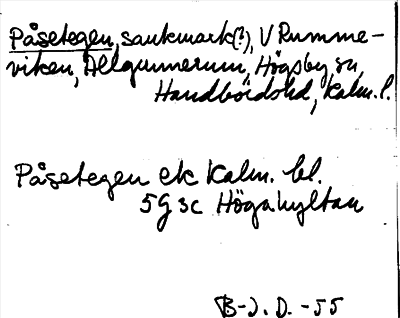 Påsetegen, sankmark(?), V Rumme-
viken, Allgunnerum, Högsby sn,
Handbördshd, Kalm. l.
Påsetegen ek Kalm. bl.
5G 3c Högahyltan
B-J. D. -55